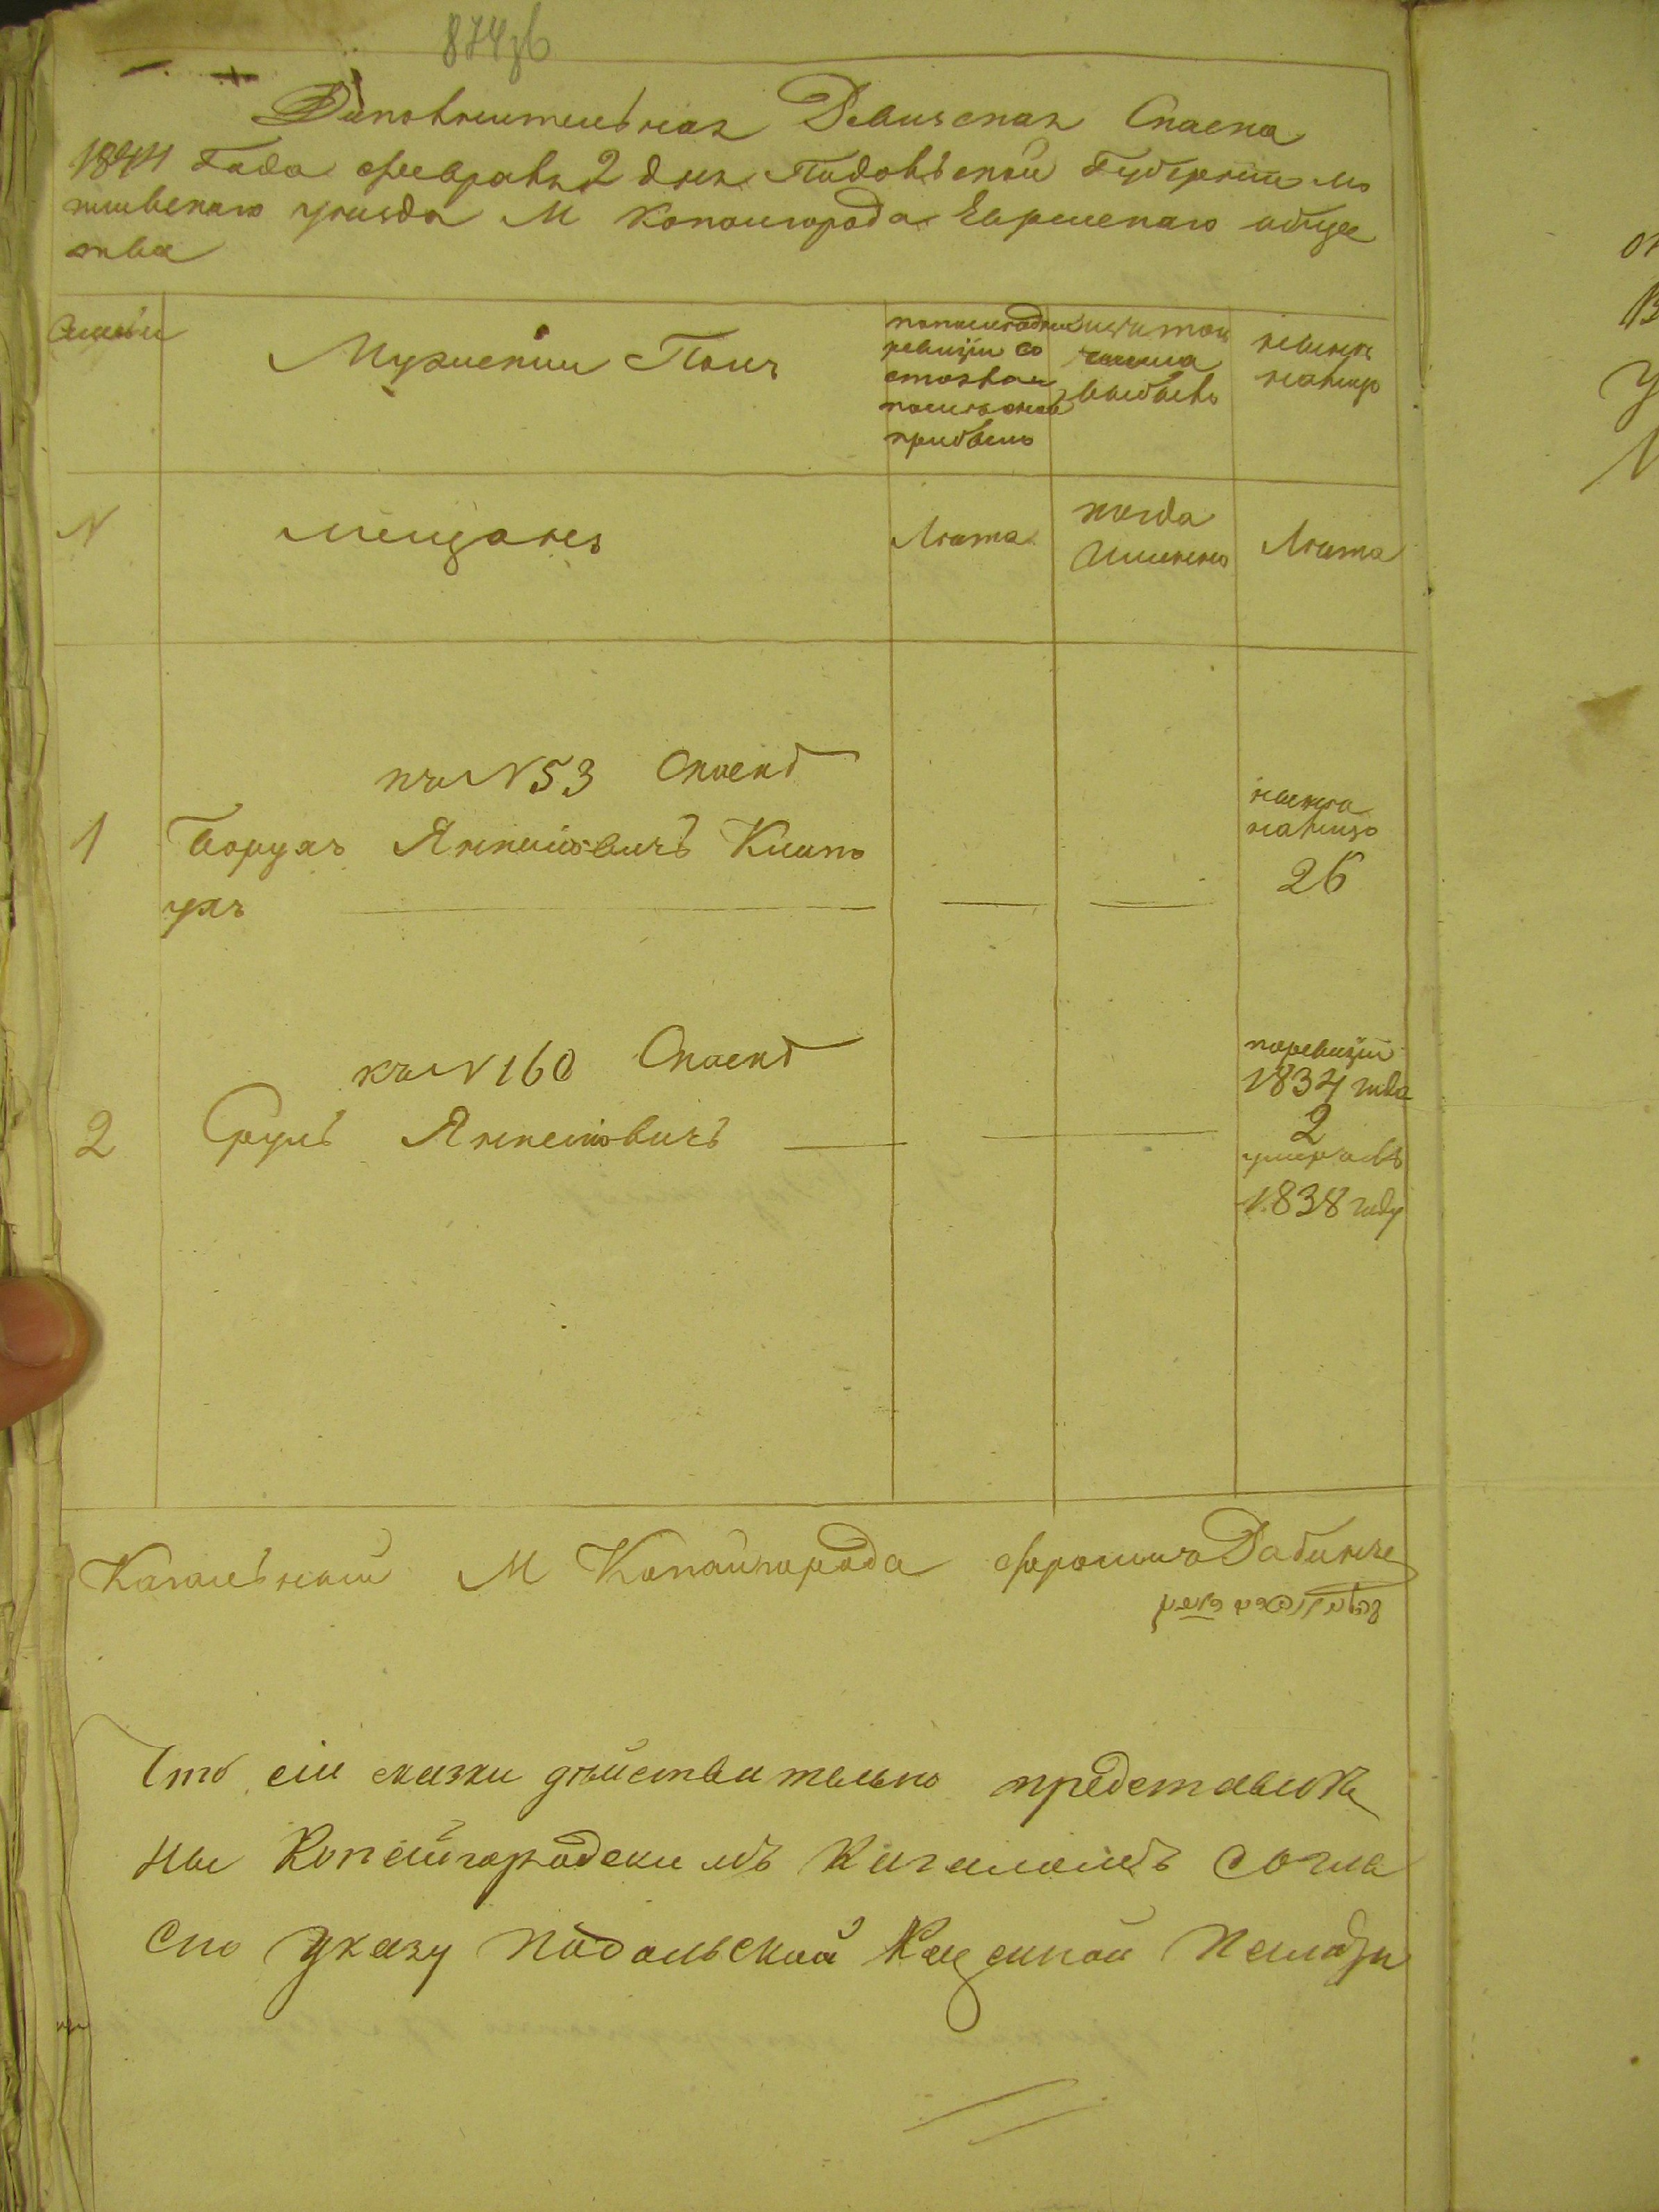 874 зв
Дополнительная Ревизская Сказка
1841 года февраля 2 дня Подольской Губернии мо
гилевскаго уезда М Копаигорода Еврейскаго общес
тва
Семьи
Мужеский Полъ
по последней
ревизіи со
стояло и
после оной
прибыло
изъ того
числа
выбыло
ныне
налицо
N
мещане
Лета
когда
Именно
Лета
къ N 53 Сказке
1
Борухъ Янкелiовичъ
ныне
налицо
26
къ N 160 Сказке
2
Сруль Янкелiовичъ
по ревизіи
1834 года
2
умеръ въ
1838 году
Кагальный М Копайгорода
Что сіи сказки действительно представле
ны Копайгородскимъ Кагаломъ согла
сно указу Подольской Казенной Палаты